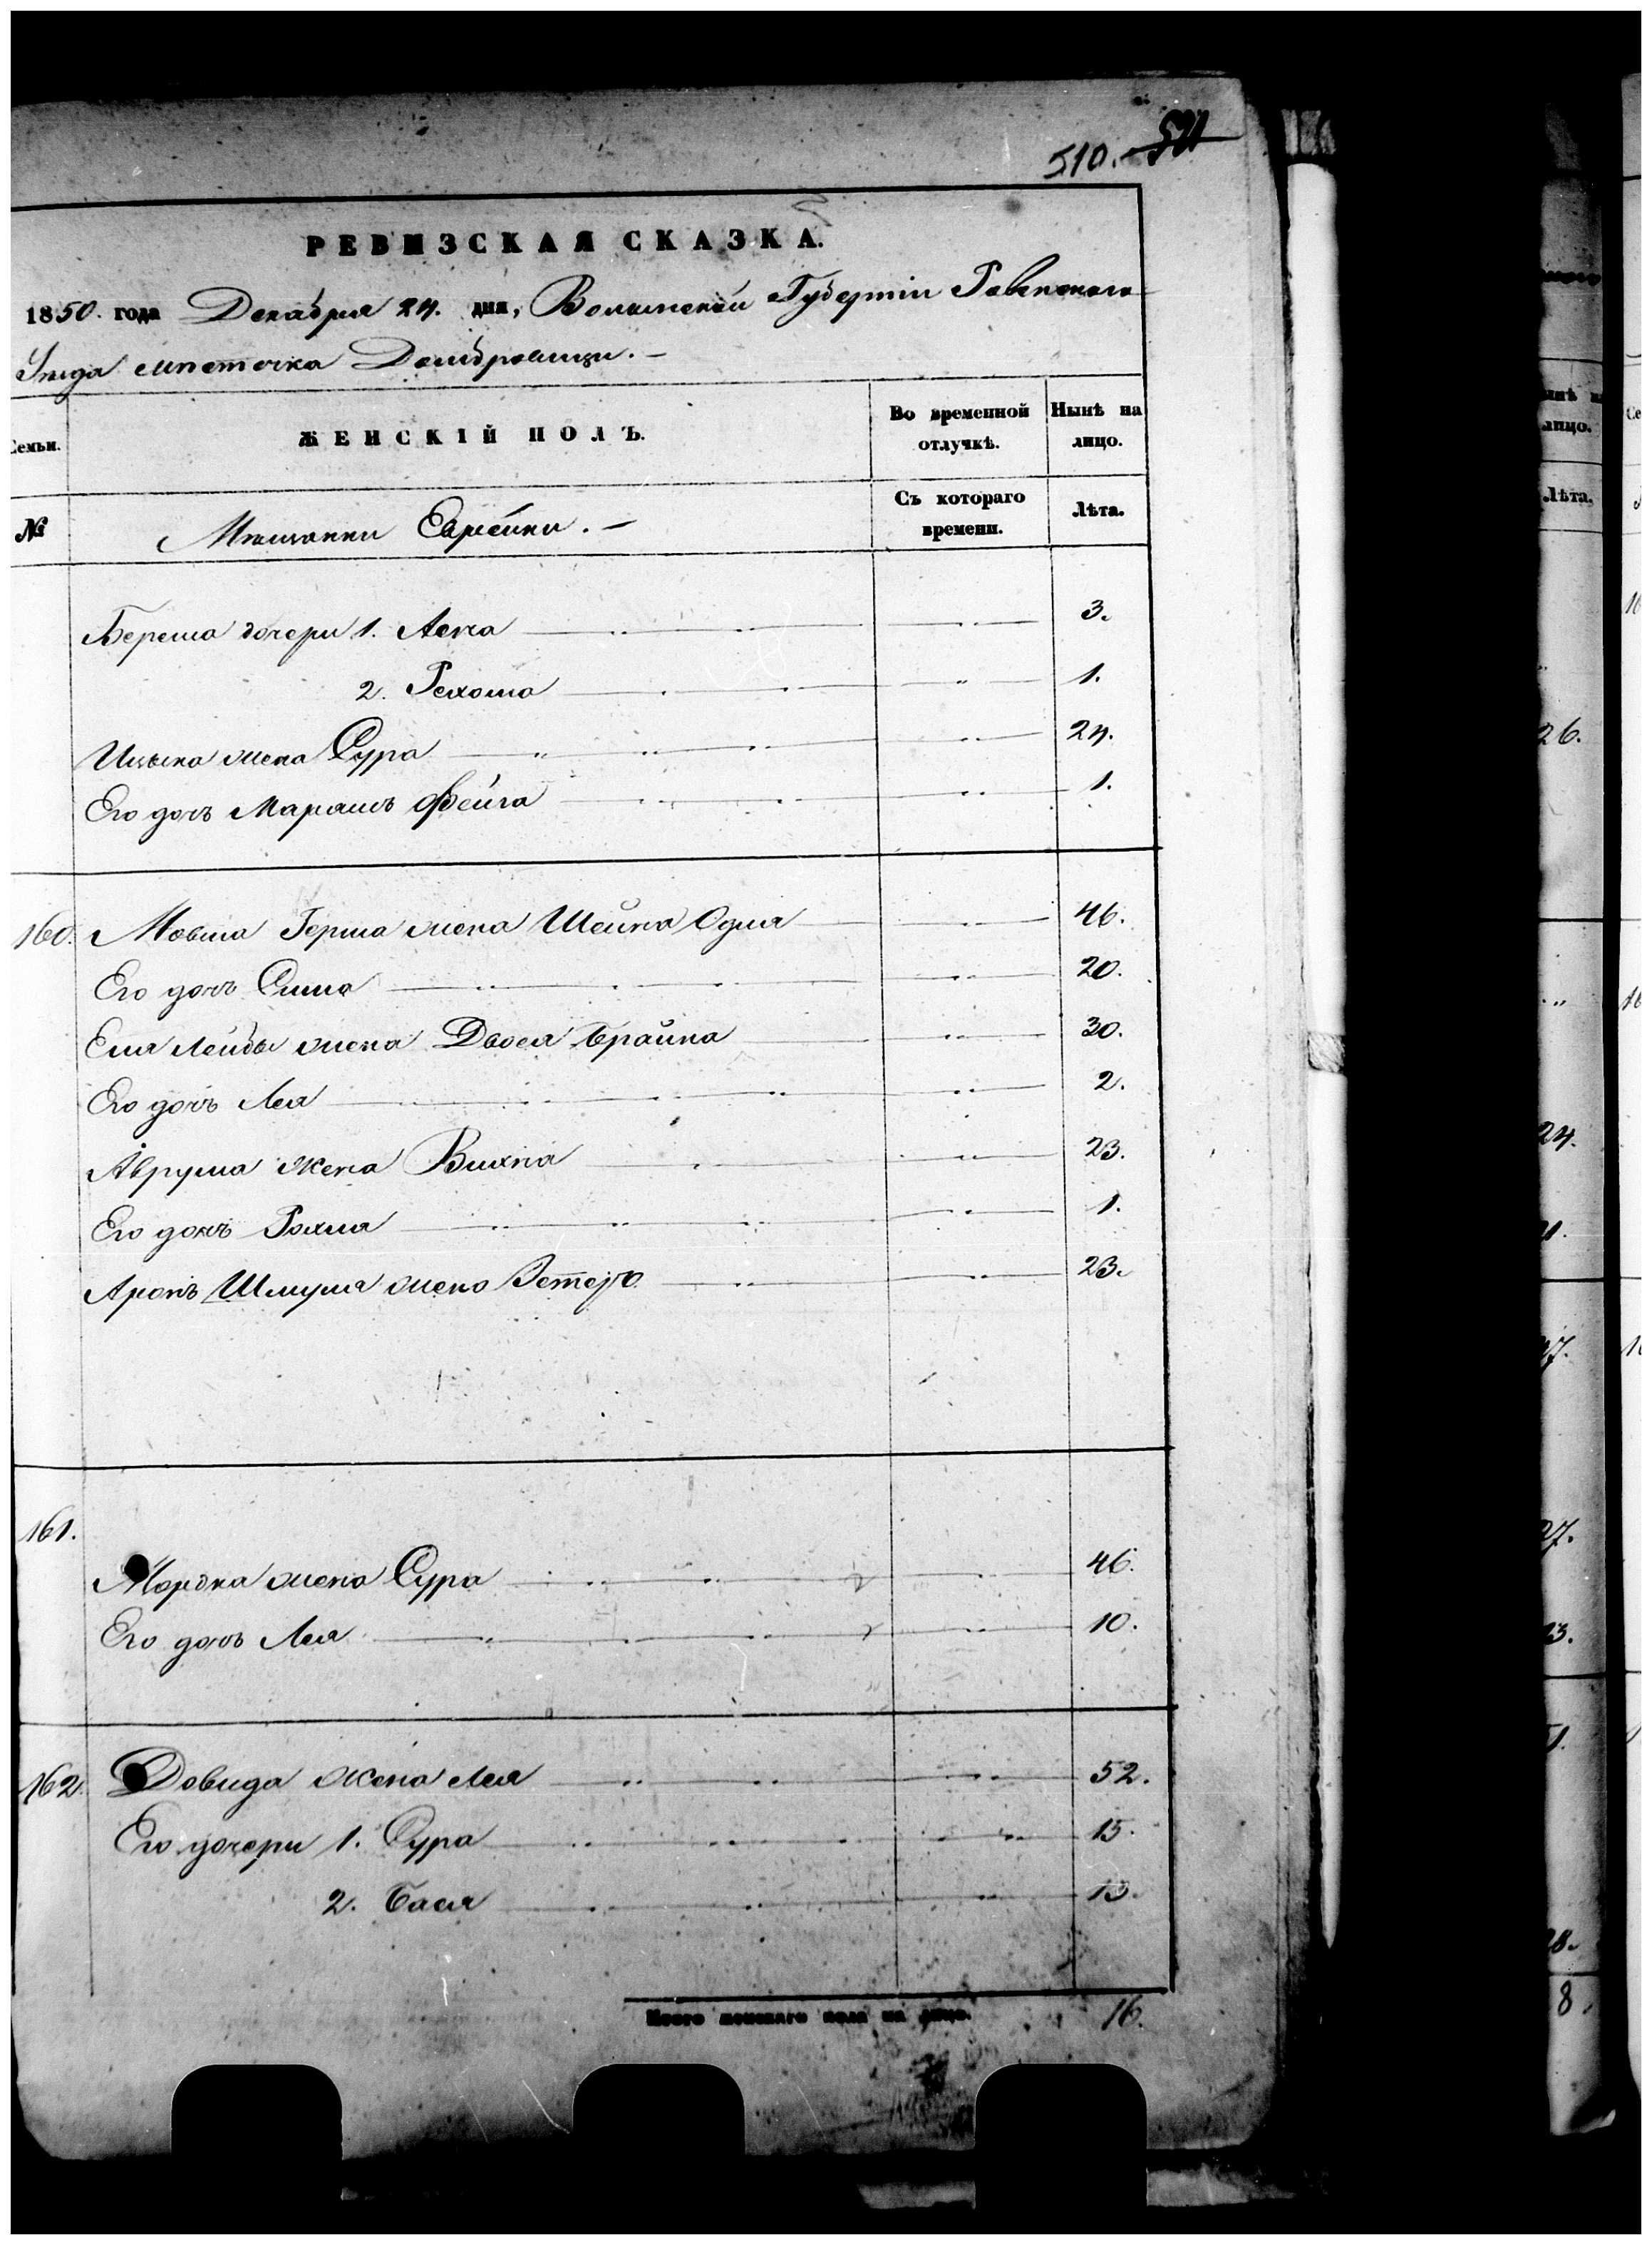 510. 521
РЕВИЗСКАЯ СКАЗКА.
1850. года Декабря 24. дня, Волынской Губерніи Ровенскаго
Уѣзда мѣстечка Домбровицы. –
Семьи. ЖЕНСКІЙ ПОЛЪ. Во временной отлучкѣ. Нынѣ на лицо.
№ Мѣщанки Еврейки. – Съ котораго времени. Лѣта.
Береша дочери 1. Лека 3.
2. Рехома 1.
Ицька жена Сура 24.
Его дочь Марамъ Фейга 1.
160. Мовша Герша жена Шейна Одля 46.
Его дочь Сима 20.
Еля Лейбы жена Двося Брайна 30.
Его дочь Лея 2.
Аврума жена Вихна 23.
Его дочь Рахля 1.
Аронъ Шмуля жена Эстера 23.
161.
Мордка жена Сура 46.
Его дочь Лея 10.
162. Довида жена Лея 52.
Его дочери 1. Сура 15.
2. Бася 13.
Итого женскаго пола на лицо. 16.
лицо.
Лѣта.
26.
24.
27.
8.